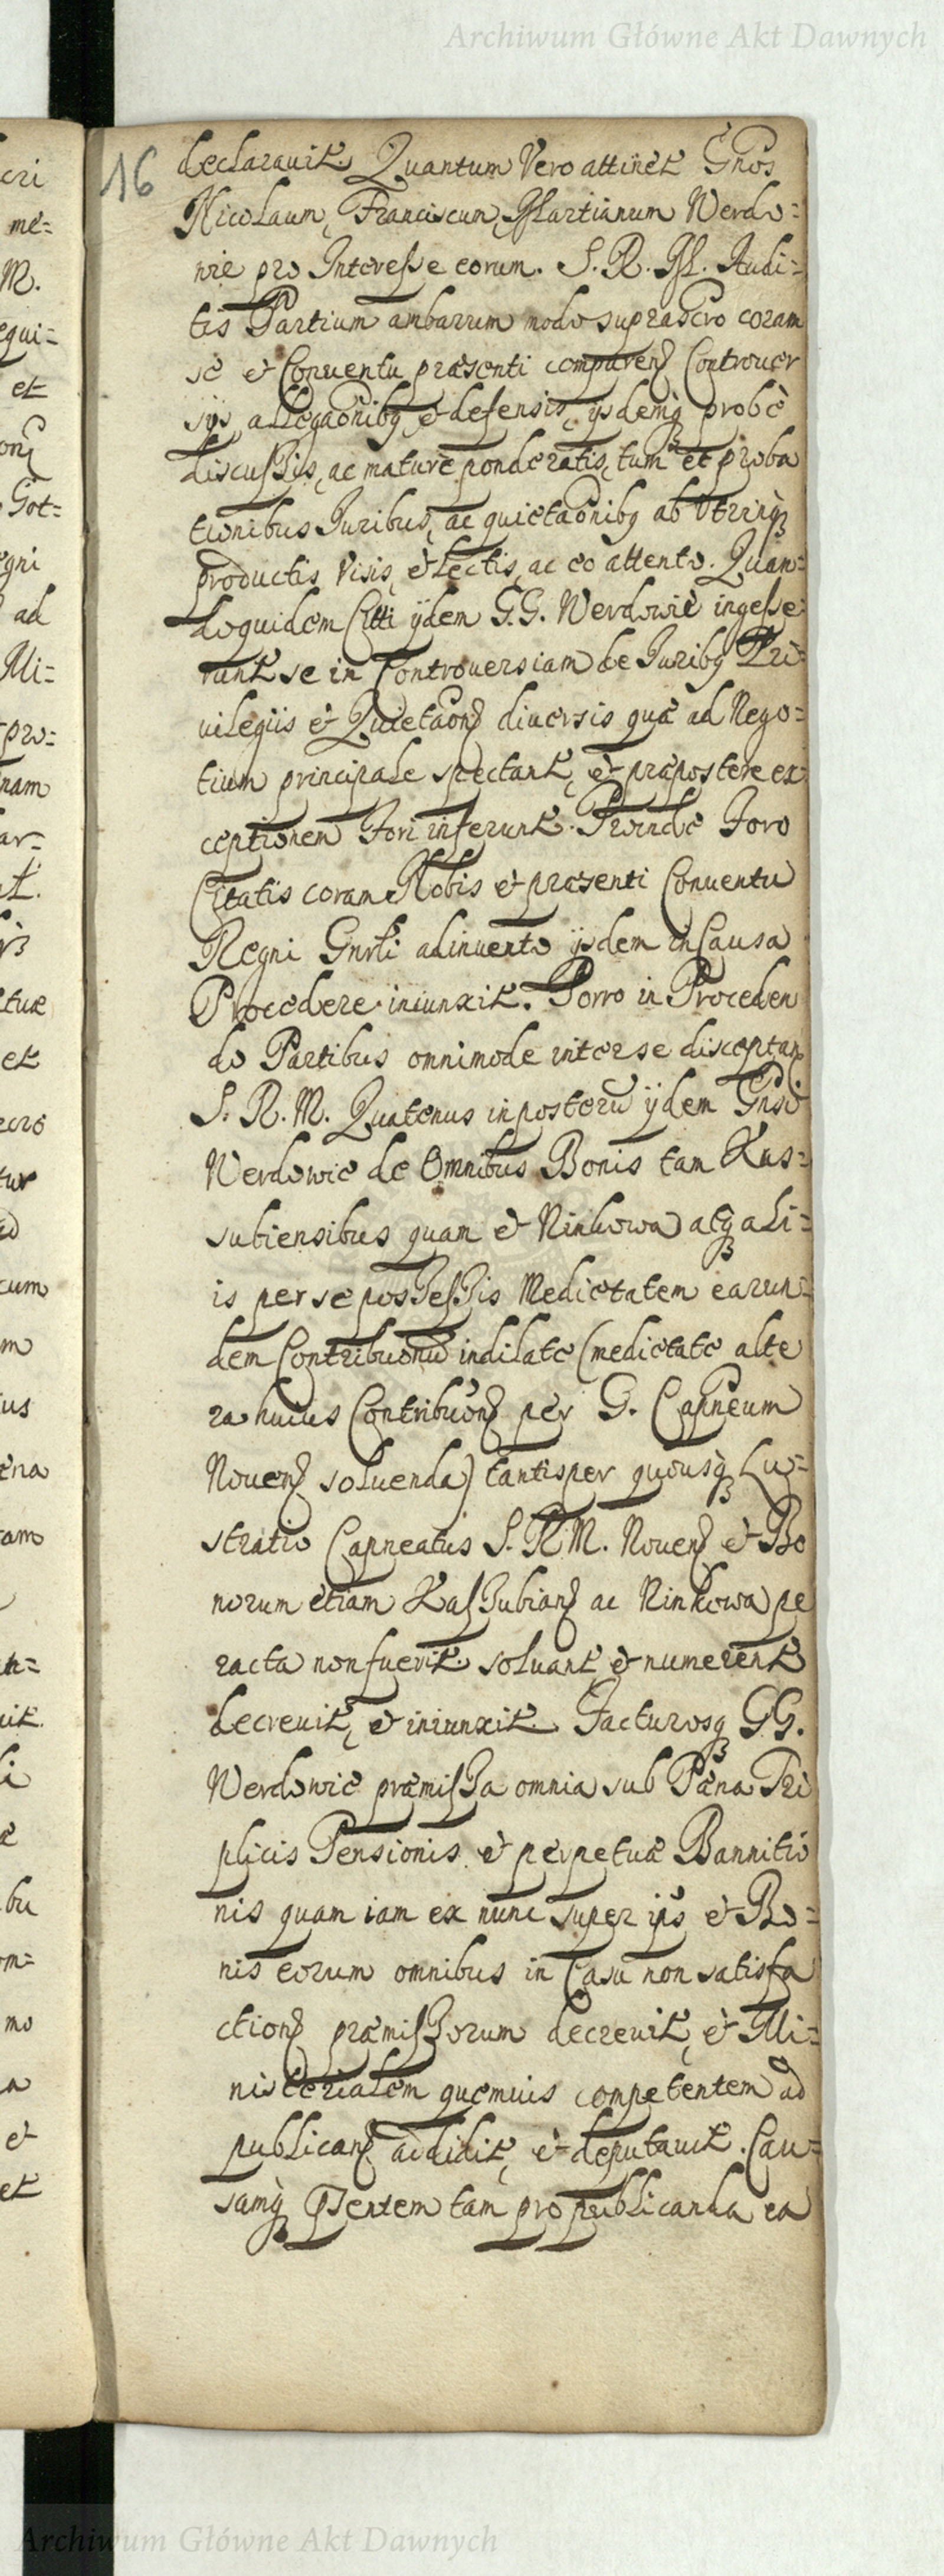 Archiwum Główne Akt Dawnych
16
declarauit. Quantum Vero attinet Gnos
Nicolaum, Franciscum, Martianum Werdo=
wie pro Interesse eorum. S. R. M. Audi=
tis Partium ambarum modo suprascro coram
se et Conuentu præsenti comparen Controuer
sijs, allegaonibq et defensis, ijsdemq probè
discussis, ac mature ponderatis, tum et proba
tionibus Juribus, ac quietaonibq ab Utrinq
productis Visis, et Lectis, ac eo attento. Quan=
doquidem Citti ijdem G.G. Werdowie ingesse
runt se in Controuersiam de Juribq Pri=
uilegiis et Quietaon diuersis quæ ad Nego=
tium principale spectant, et præpostere ex
ceptionem Fori inferunt. Proinde Foro
Citatis coram Nobis et præsenti Conuentu
Regni Gnrli adinuento ijsdem in Causa
Procedere iniunxit. Porro in Proceden
do Partibus omnimode inter se disceptan
S. R. M. Quatenus inposterū ijdem Gnsi
Werdowie de Omnibus Bonis tam Kas=
subiensibus quam et Ninkowa atq ali=
is per se possessis Medietatem earun=
dem Contribuonū indilate (medietate alte
ra huius Contribuon per G. Capneum
Nouen soluenda) tantisper quousq Lu=
stratio Capneatus S. R. M. Nouen et Bo
norum etiam Kassubian ac Ninkowa pe
racta non fuerit. soluant, et numerent
decreuit, et iniunxit. Facturosq GG.
Werdowie præmissa omnia sub Pæna Tri
plicis Pensionis et perpetuæ Bannitio
nis quam iam ex nunc super ips et Bo=
nis eorum omnibus in Casu non satisfa
ction præmissorum decreuit, et Mi=
nisterialem quemuis competentem ad
publican addidit, et deputauit. Cau=
samq Psentem tam pro publicanda ea
Archiwum Główne Akt Dawnych